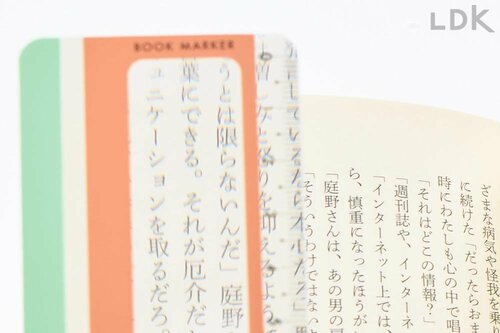 LDK
BOOK MARKER
ざまな病気や怪我を乗
時にわたしも心の中で唱
に続けた「だったらおま
「それはどこの情報？」
「週刊誌や、インターネ
「インターネット上では、
ら、慎重になったほうが
「庭野さんは、あの男の肩
「そういうわけではない
うとは限らないんだ」庭野
葉にできる。それが厄介だ
ュニケーションを取るだろ。